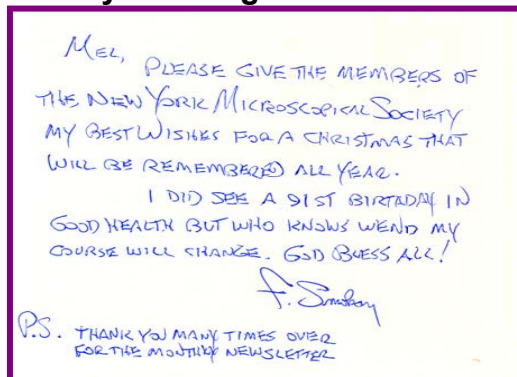 MEL,
PLEASE GIVE THE MEMBERS OF
THE NEW YORK MICROSCOPICAL SOCIETY
MY BEST WISHES FOR A CHRISTMAS THAT
WILL BE REMEMBERED ALL YEAR.
I DID SEE A 91ST BIRTADAY IN
GOOD HEALTH BUT WHO KNOWS WEND MY
COURSE WILL CHANGE. GOD BLESS ALL!
F.
P.S. THANK YOU MANY TIMES OVER
FOR THE MONTHLY NEWSLETTER